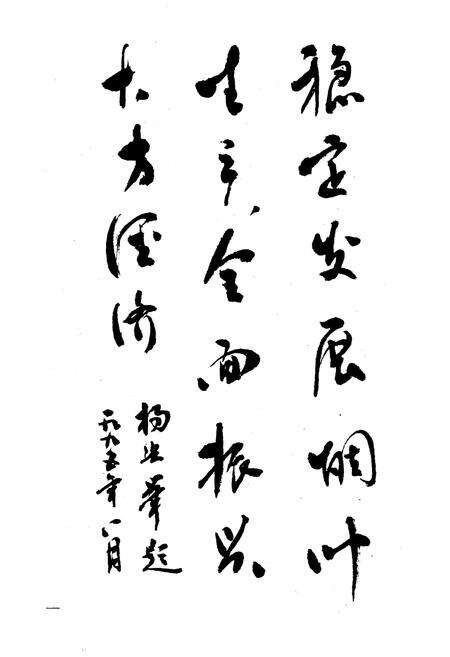 稳定发展烟叶
生产,全面振兴
大方经济
杨 题
一九九五年八月
一